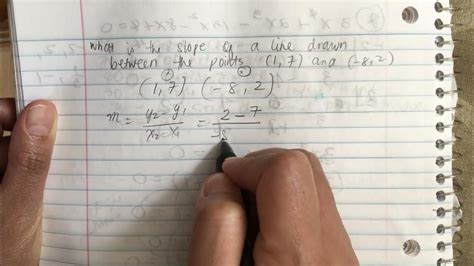 3x⁴ + 2x³ - 12x² - 8x + 8 = 0
What is the slope of a line drawn
between the points (1,7) and (-8,2)
① ②
(1,7) (-8,2)
m = y₂ - y₁ / x₂ - x₁ = 2 - 7 / -8